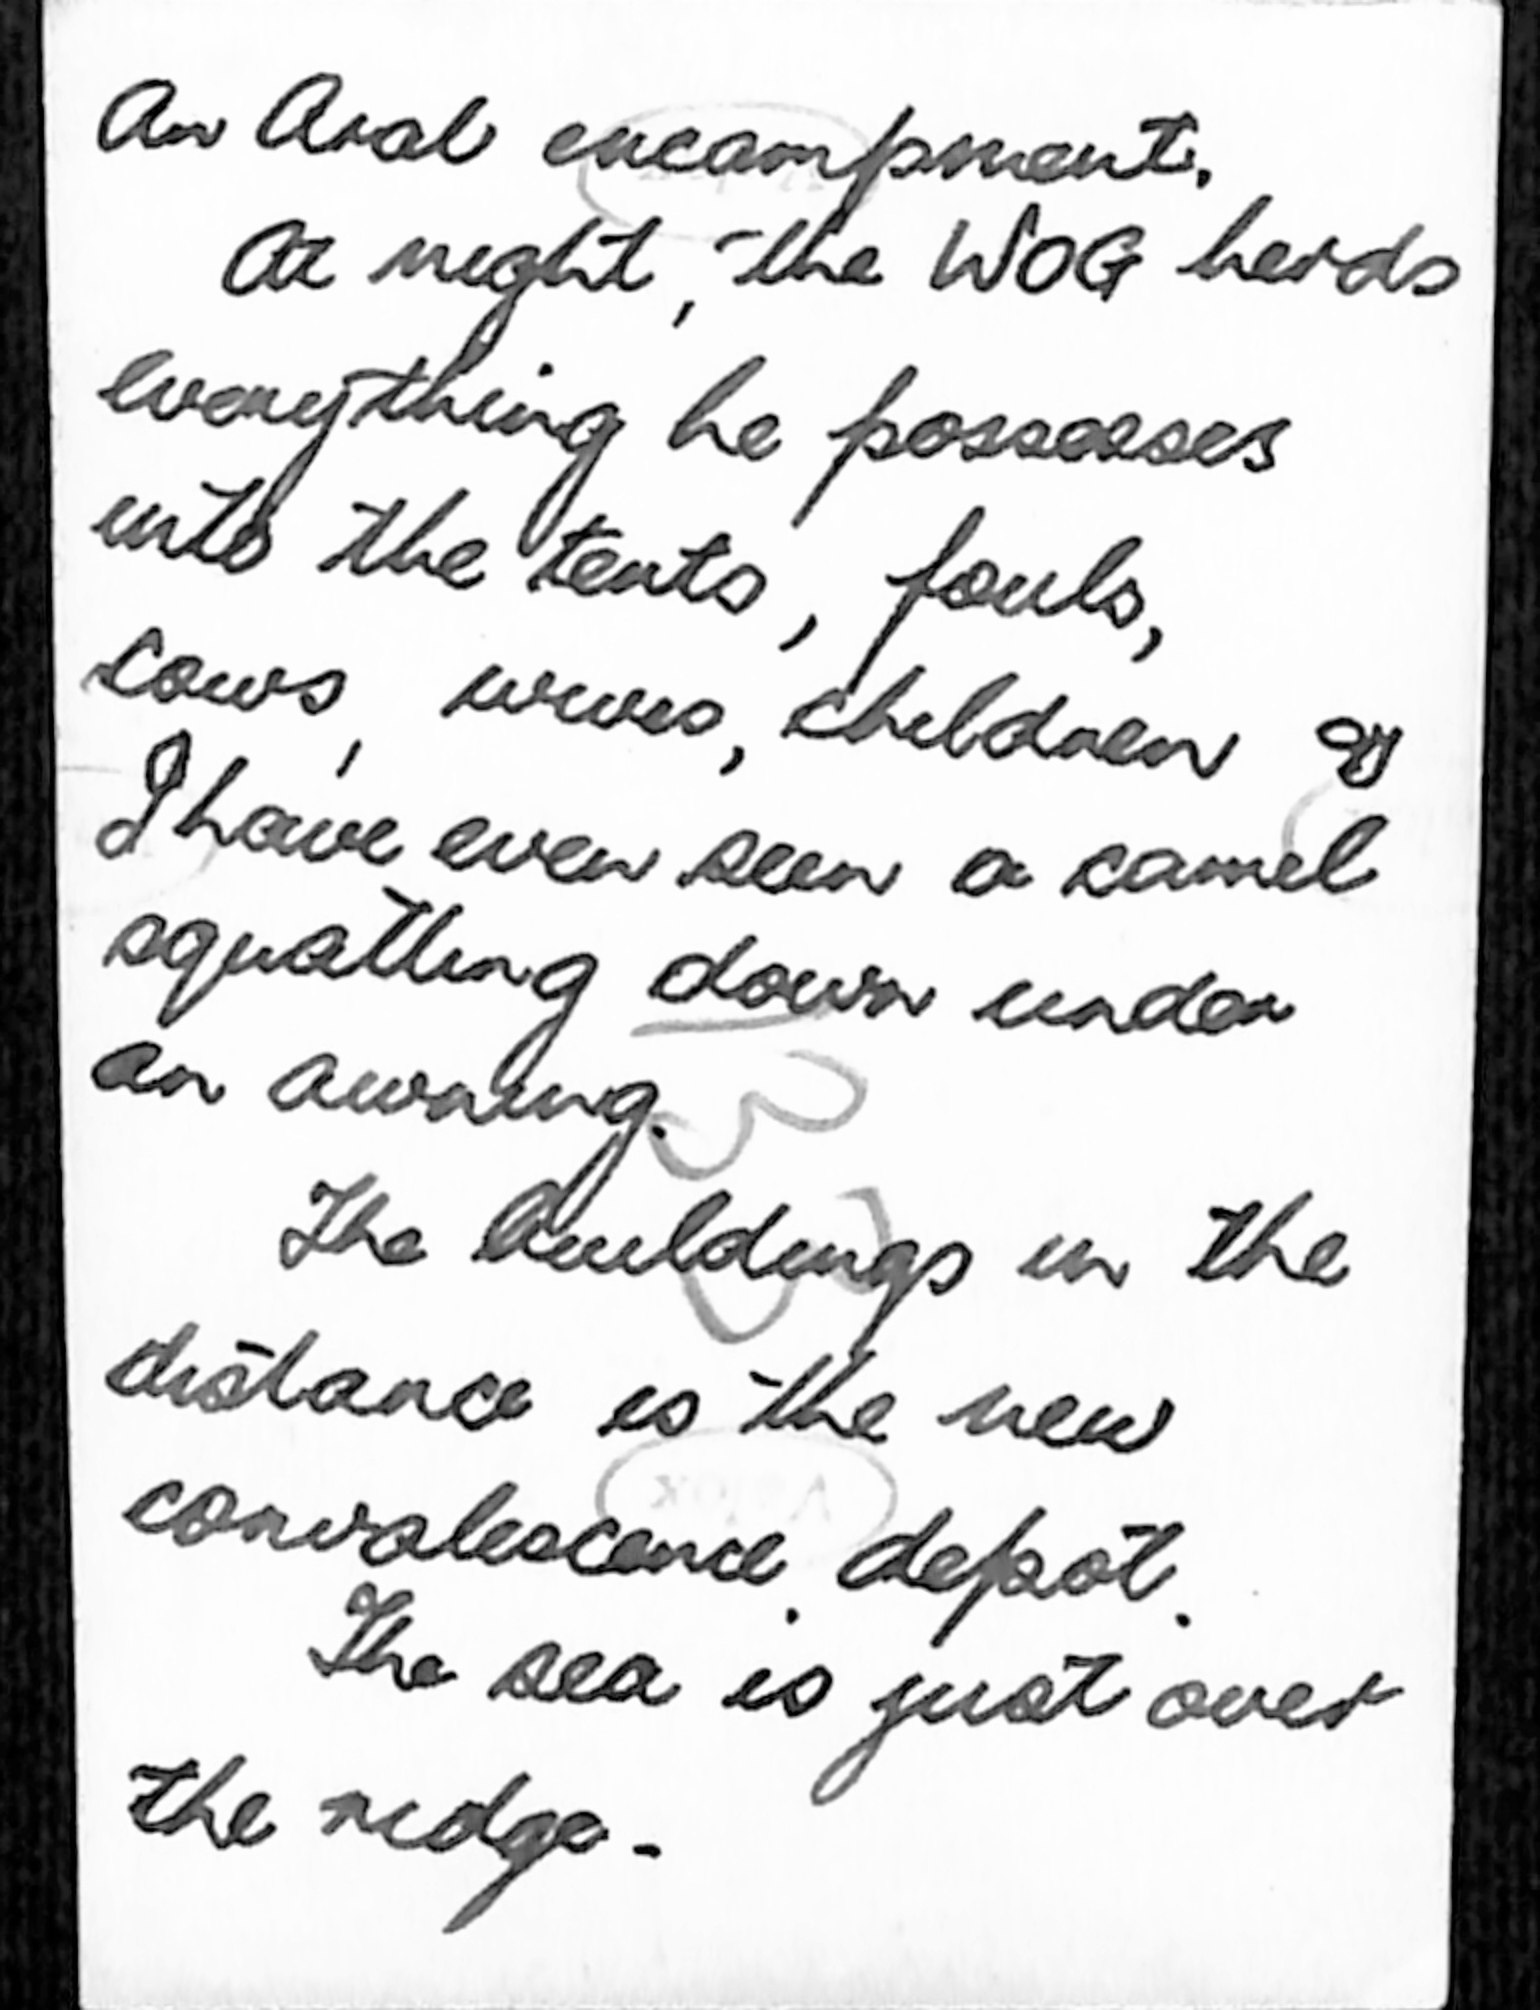 An Arab encampment.
At night, the WOG herds
everything he possesses
into the tents, fouls,
cows, wives, children &
I have even seen a camel
squatting down under
an awning.
The buildings in the
distance is the new
convalescence depot.
The sea is just over
the ridge.